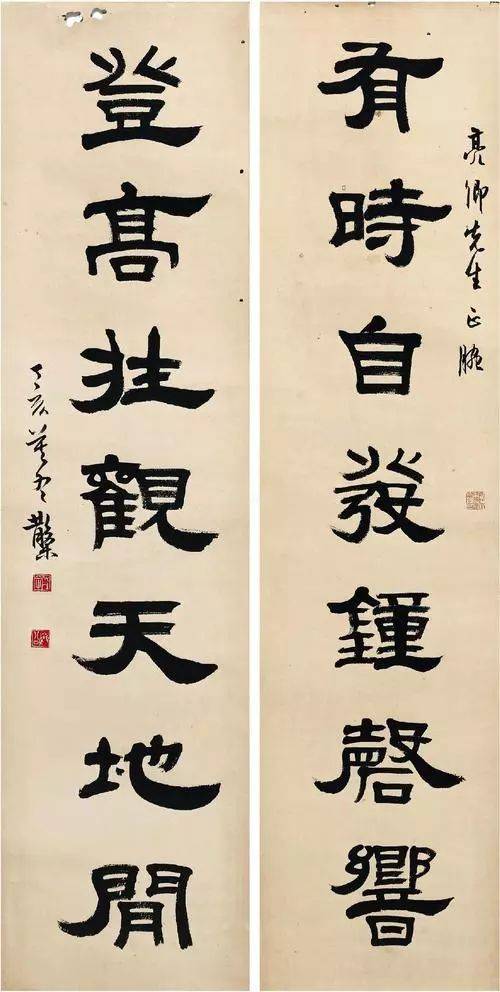 亮卿先生正腕
有時自發鐘磬響
登高壯觀天地間
丁亥莫冬